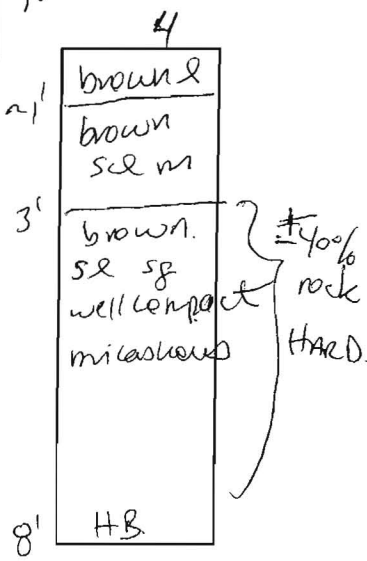 4
brown l
~1'
brown
scl m
3'
brown.
sl sg
well compact
micashous
±40%
rock
HARD.
8'
HB.